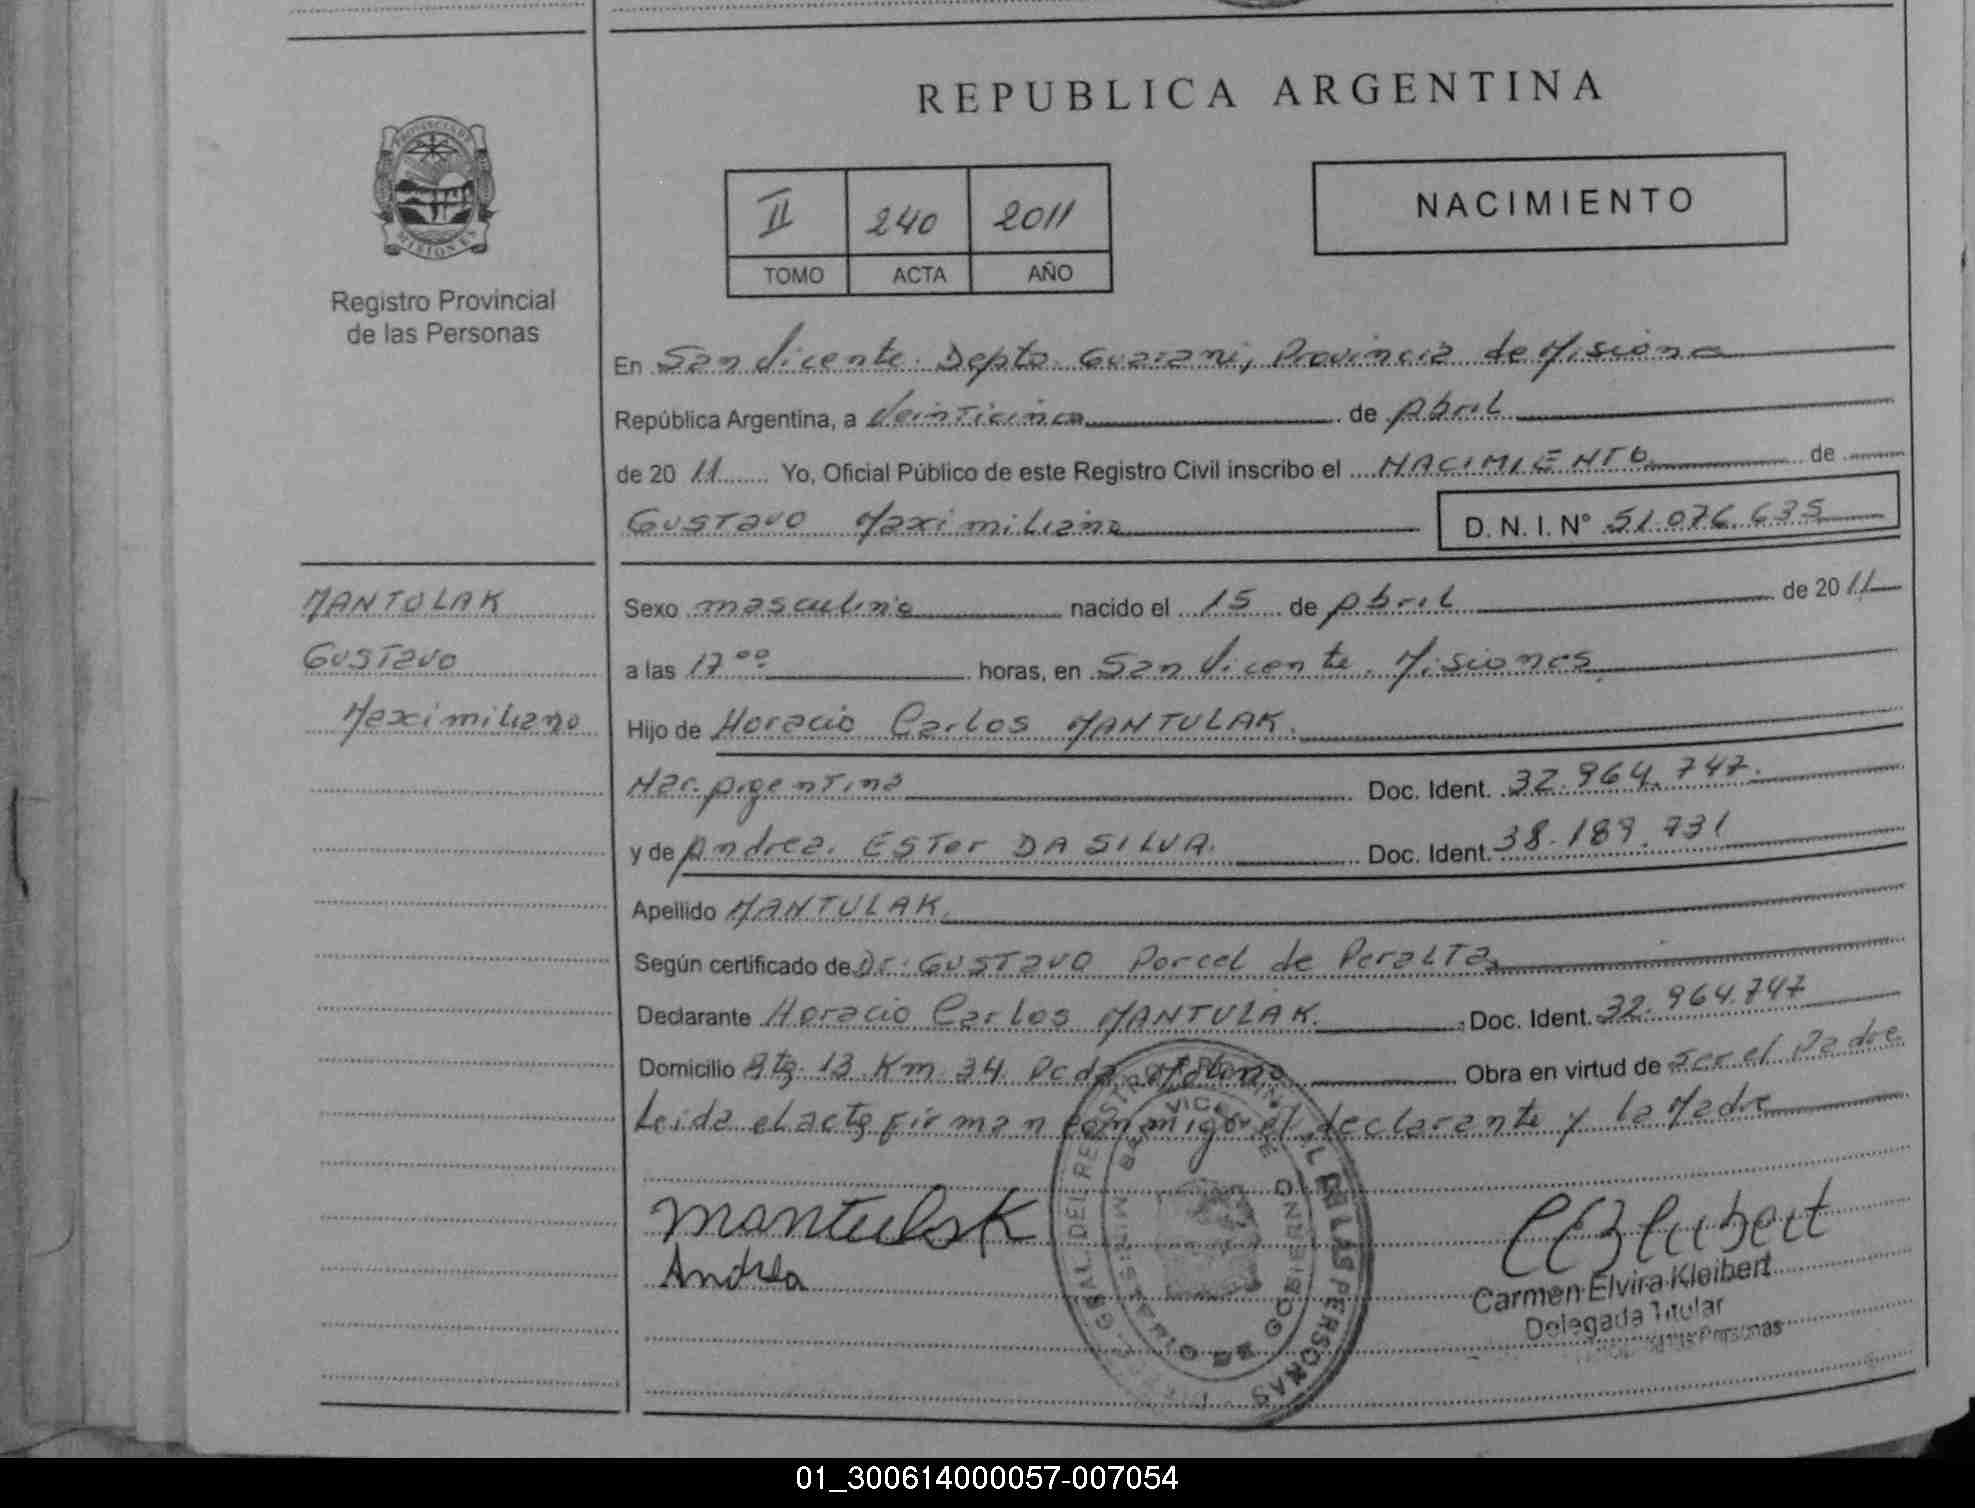 REPUBLICA ARGENTINA
PROVINCIA DE
MISIONES
Registro Provincial
de las Personas
II 240 2011
TOMO ACTA AÑO
NACIMIENTO
En San Vicente. Depto. Guarani, Provincia de Misiones
República Argentina, a Veinticinco de Abril
de 20 11 Yo, Oficial Público de este Registro Civil inscribo el NACIMIENTO de
GUSTAVO Maximiliano D. N. I. N° 51.076.635
MANTULAK
GUSTAVO
Maximiliano
Sexo masculino nacido el 15 de Abril de 20 11
a las 17 00 horas, en San Vicente. Misiones
Hijo de Horacio Carlos MANTULAK.
Nac. Argentina Doc. Ident. 32.964.747.
y de Andrea. ESTer DA SILVA. Doc. Ident. 38.189.731
Apellido MANTULAK.
Según certificado de Dr. GUSTAVO Porcel de Peralta
Declarante Horacio Carlos MANTULAK. Doc. Ident. 32.964.747
Domicilio Rta. 13 Km 34 Obra en virtud de ser el Padre
Leida el acta firman conmigo el declarante y la Madre
Mantulak
Andrea
Carmen Elvira Kleibert
Delegada Titular
de las Personas
01_300614000057-007054